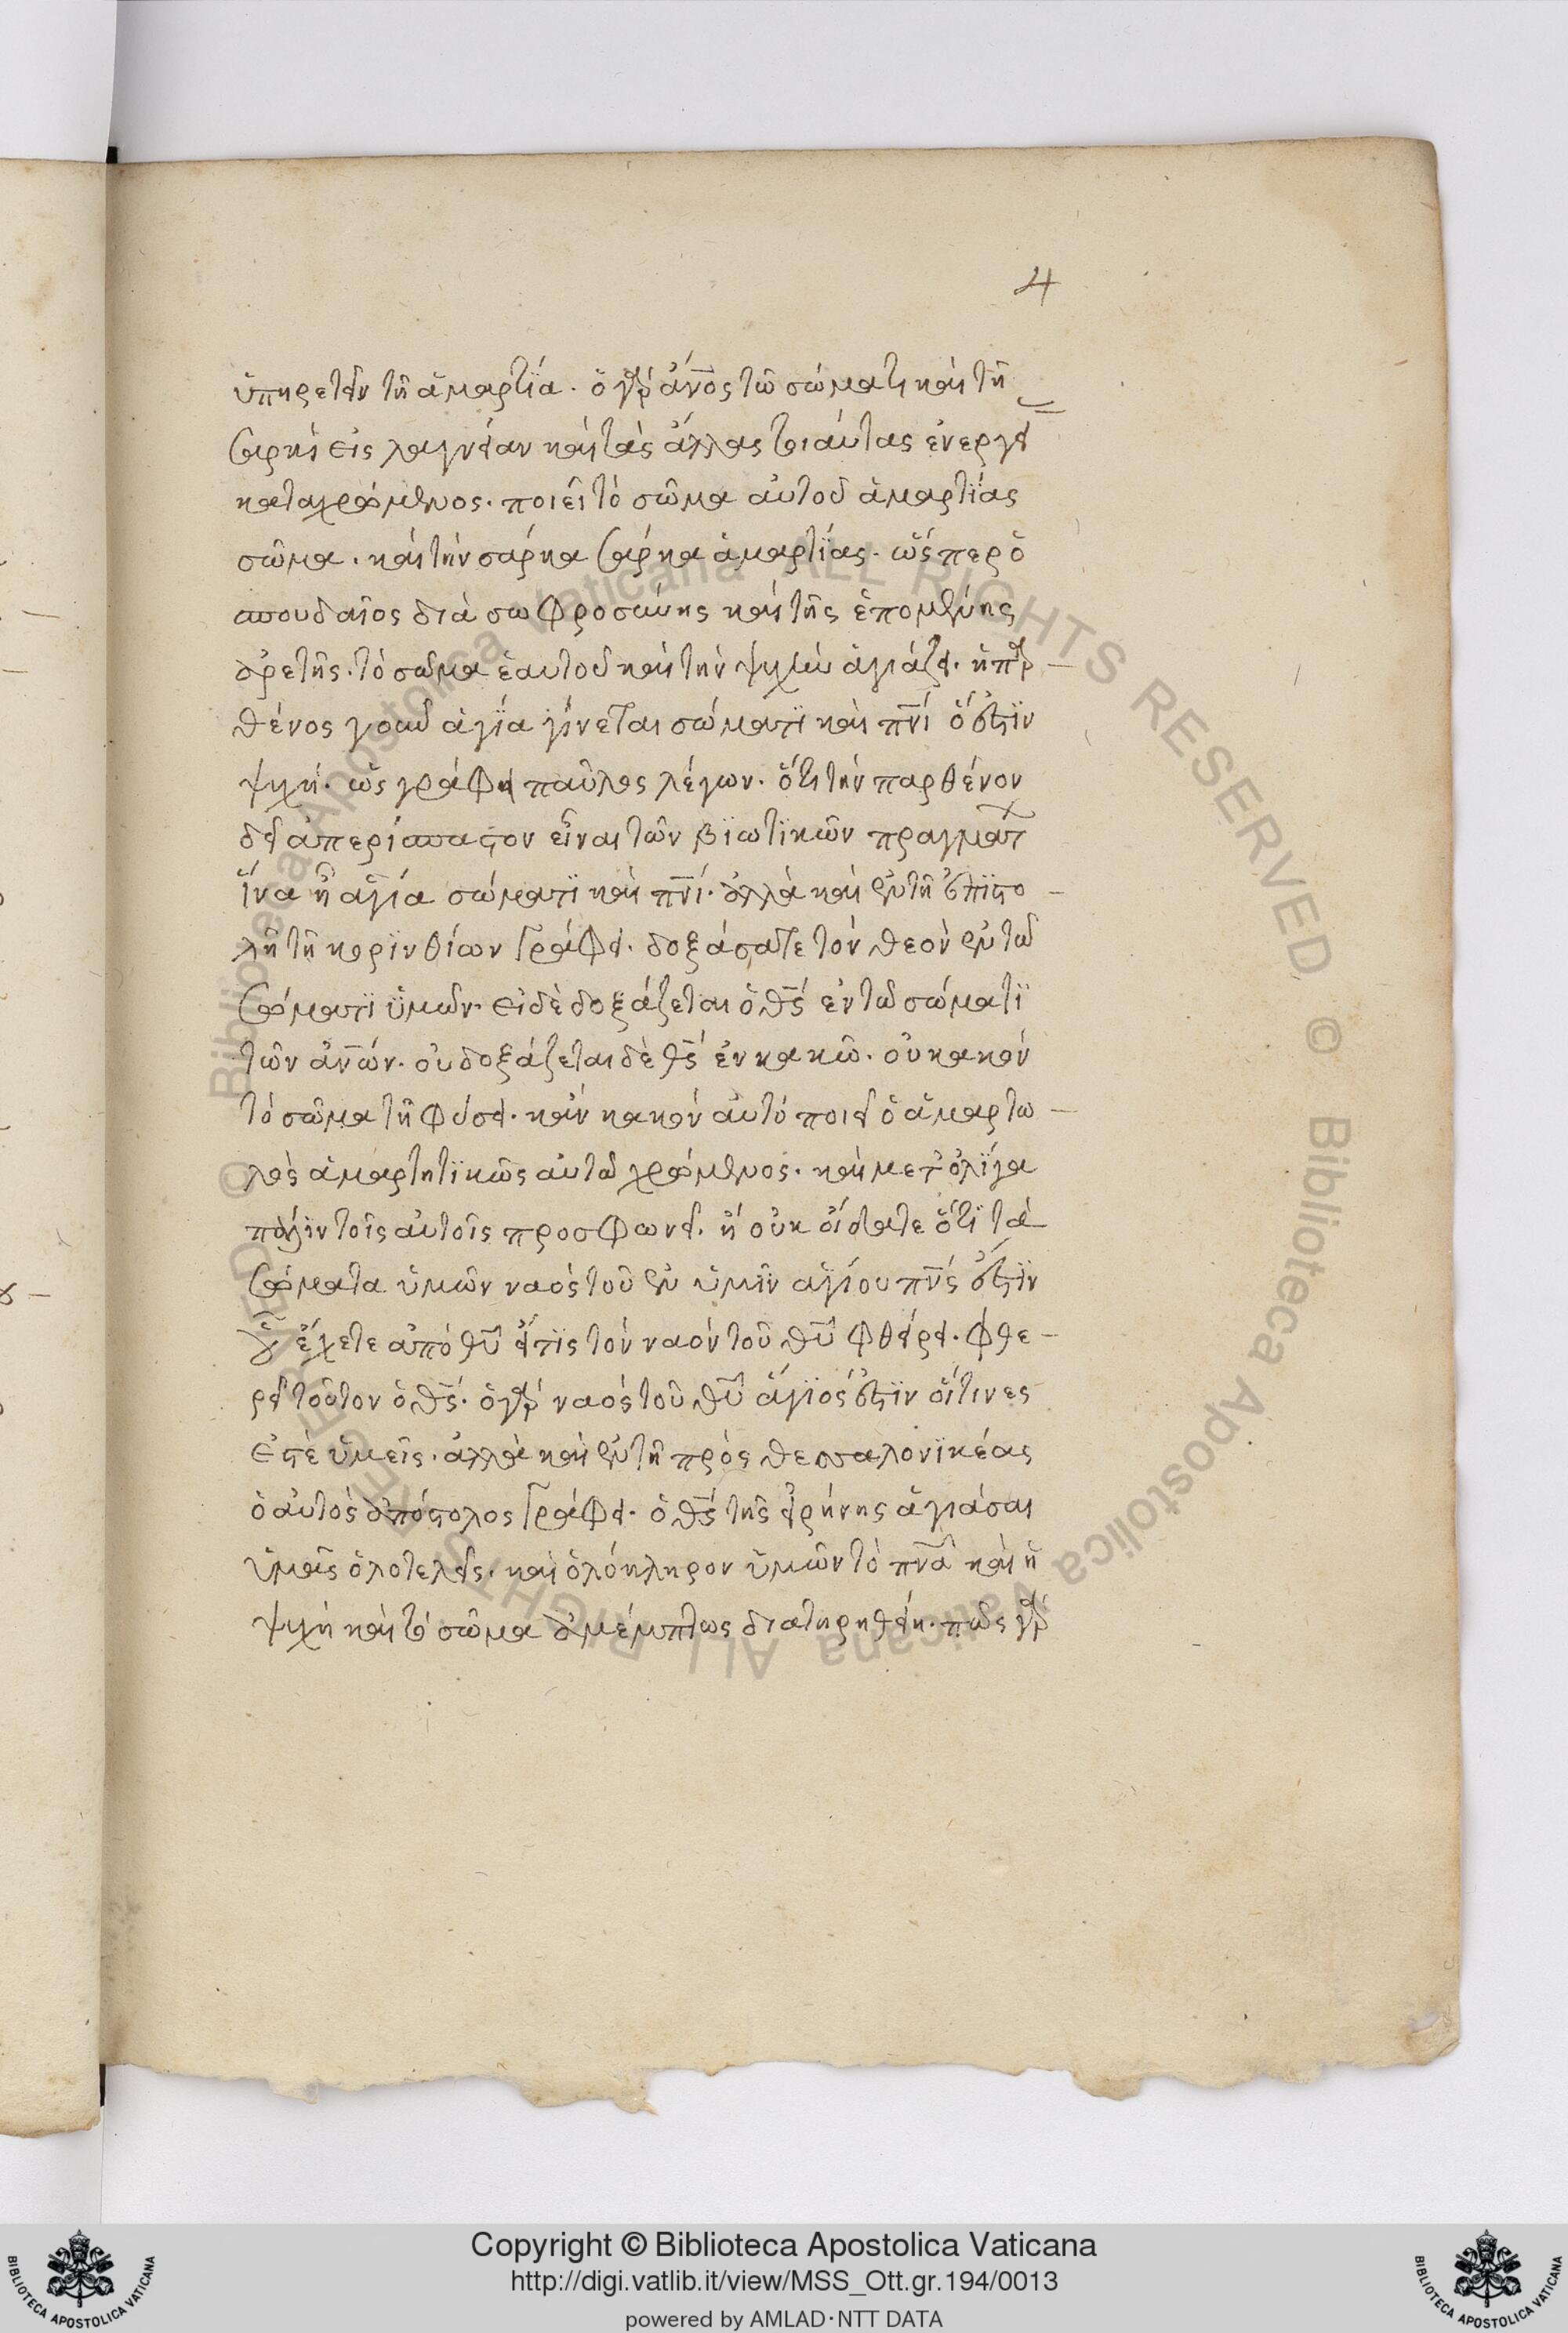 4
ὑπηρετεῖν τῆ ἁμαρτΐα. ὁ γὰρ ἀνος τῶ σώματι καὶ τῆ
σαρκὶ εἰς λαγνείαν καὶ τὰς ἄλλας τοιάυτας ἐνεργεί
καταχρώμενος. ποιεῖ τὸ σῶμα αὐτοῦ ἁμαρτΐας
σῶμα. καὶ τὴν σάρκα σάρκα ἁμαρτΐας. ὥσπερ ὁ
σπουδαῖος διὰ σωφροσύνης καὶ τῆς ἑπομένης
ἀρετῆς. τὸ σῶμα ἑαυτοῦ καὶ τὴν ψυχὴν ἁγιάζει. ἡ παρ
θένος γοῦν ἁγΐα γίνεται σώματϊ καὶ πνι ὅ ἐστϊν
ψυχή. ὡς γράφει παῦλος λέγων. ὅτι τὴν παρθένον
δεῖ ἀπερίσπαστον εἶναι τῶν βϊωτϊκῶν πραγμάτ
ἵνα ἦ ἁγία σώματϊ καὶ πνι. ἀλλὰ καὶ ἐν τῆ ἐπϊστο
λῆ τῆ κορϊνθίων γράφει. δοξάσατε τὸν θεὸν ἐν τῶ
σώματϊ ὑμῶν. εἰ δὲ δοξάζεται ὁ θς ἐν τῶ σώματϊ
τῶν ἀνων. οὐ δοξάζεται δὲ θς ἐν κακῶ. οὐ κακὸν
τὸ σῶμα τῆ φύσει. κἂν κακὸν αὐτὸ ποιεῖ ὁ ἁμαρτω
λὸς ἁμαρτητϊκῶς αὐτῶ χρώμενος. καὶ μετ' ὀλΐγα
πάλϊν τοῖς αὐτοῖς προσφωνεῖ. ἢ οὐκ οἴδατε ὅτϊ τὰ
σώματα ὑμῶν ναὸς τοῦ ἐν ὑμῖν ἁγΐου πνς ἐστϊν
οὗ ἔχετε ἀπὸ θυ εἴ τϊς τὸν ναὸν τοῦ θυ φθείρει. φθε
ρεῖ τοῦτον ὁ θς. ὁ γὰρ ναὸς τοῦ θυ ἅγϊός ἐστϊν οἵτινες
ἐστὲ ὑμεῖς. ἀλλὰ καὶ ἐν τῆ πρὸς θεσσαλονϊκέας
ὁ αὐτὸς ἀπόστολος γράφει. ὁ θς τῆς εἰρήνης ἁγιάσαι
ὑμᾶς ὁλοτελεῖς. καὶ ὁλόκληρον ὑμῶν τὸ πνα καὶ ἡ
ψυχὴ καὶ τὸ σῶμα ἀμέμπτως διατηρηθείη. πῶς γὰρ
© Biblioteca Apostolica Vaticana ALL RIGHTS RESERVED © Biblioteca Apostolica Vaticana ALL RIGHTS RESERVED
Copyright © Biblioteca Apostolica Vaticana
http://digi.vatlib.it/view/MSS_Ott.gr.194/0013
powered by AMLAD·NTT DATA
BIBLIOTECA APOSTOLICA VATICANA
BIBLIOTECA APOSTOLICA VATICANA